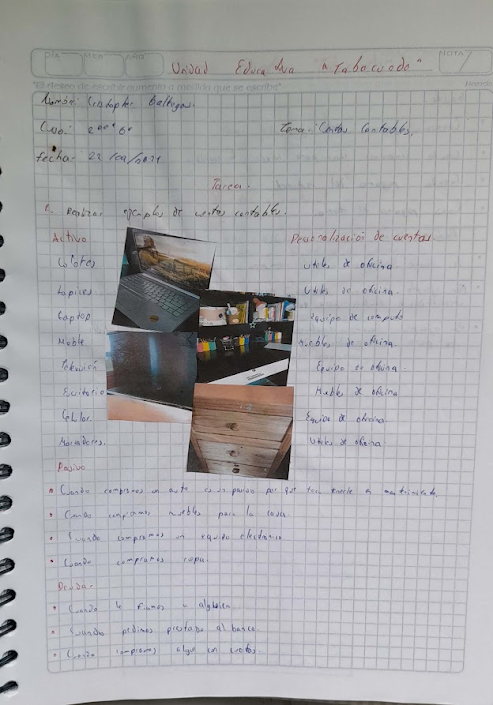 DIA MES AÑO NOTA
Unidad Educativa "a Tabacundo"
"El deseo de escribir aumenta a medida que se escribe"
Nombre: Cristopher
Curso: 2
Tema: Cuentas Contables.
Fecha: 22
Tarea.
Realizar ejemplos de cuentas contables.
Activo Personalización de cuentas.
utiles de oficina
Lapices Utiles de oficina.
Laptop Equipo de computo
Mueble Muebles de oficina.
Televisión Equipo de oficina.
Escritorio Muebles de oficina
Celular. Equipo de oficina
Marcadores. Utiles de oficina
Pasivo
• Cuando compramos un auto es un pasivo por que
• Cuando compramos muebles para la casa
• Cuando compramos un equipo electrónico
• Cuando compramos ropa.
Deuda.
• Cuando le fiamos a alguien
• Cuando pedimos prestado al banco
• Cuando compramos algo en cuotas.